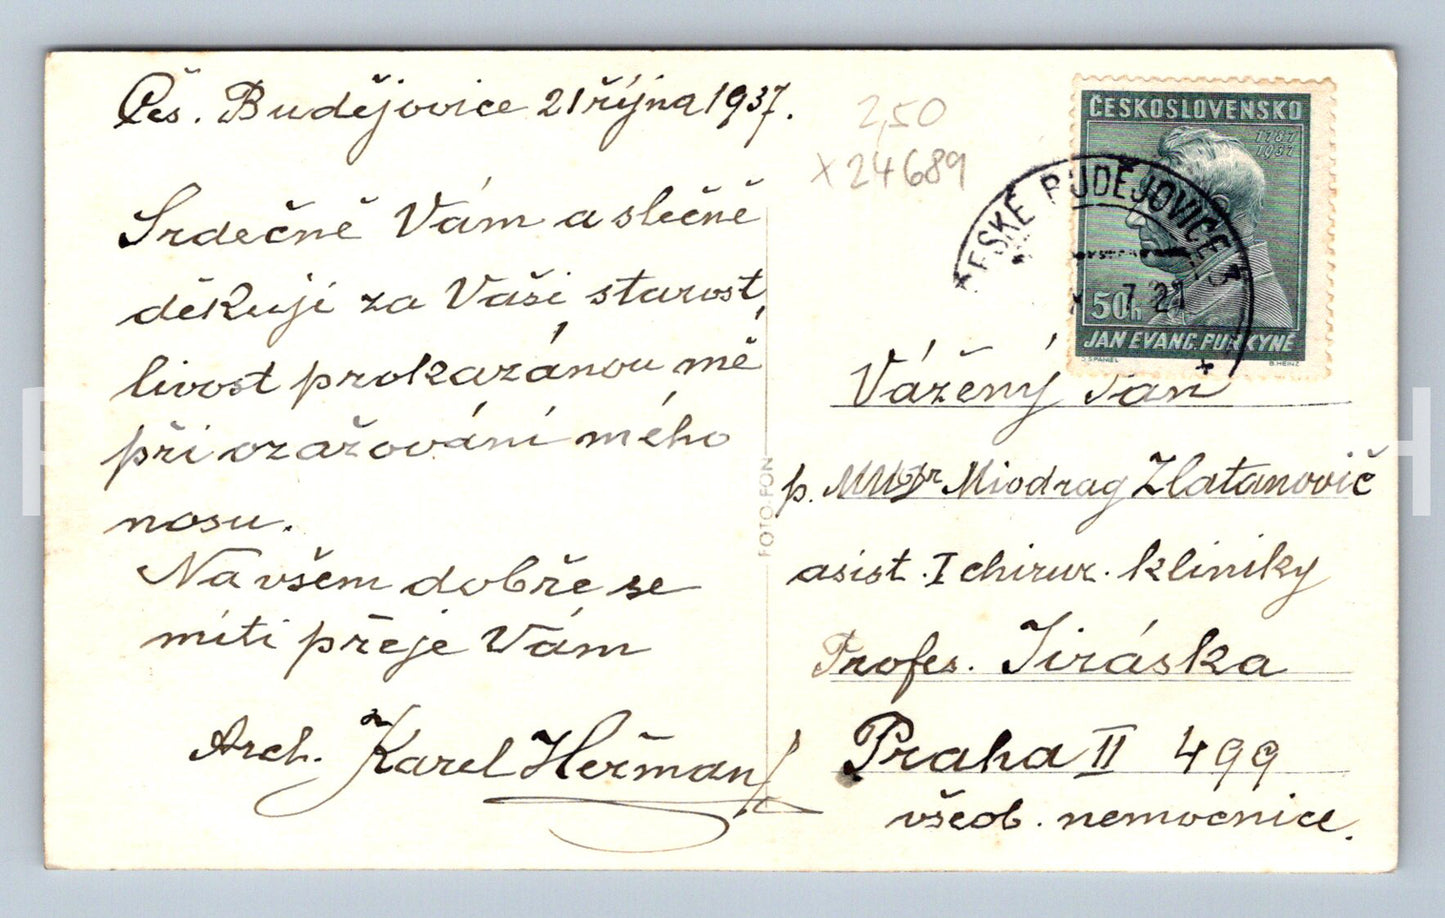 Čes. Budějovice 21 října 1937.
Srdečně Vám a slečně
děkuji za Vaši starost,
livost prokazánou mě
při ozařování mého
nosu.
Na všem dobře se
míti přeje Vám
Arch. Karel Heřman
2,50
x24689
ČESKOSLOVENSKO
1787
1937
50h
JAN EVANG. PURKYNĚ
B.HEINZ
ČESKÉ BUDĚJOVICE 3
FOTO-FON
Vážený Pan
p. MUDr Miodrag Zlatanovič
asist. I chirur. kliniky
Profes. Jiráska
Praha II 499
všeob. nemocnice.